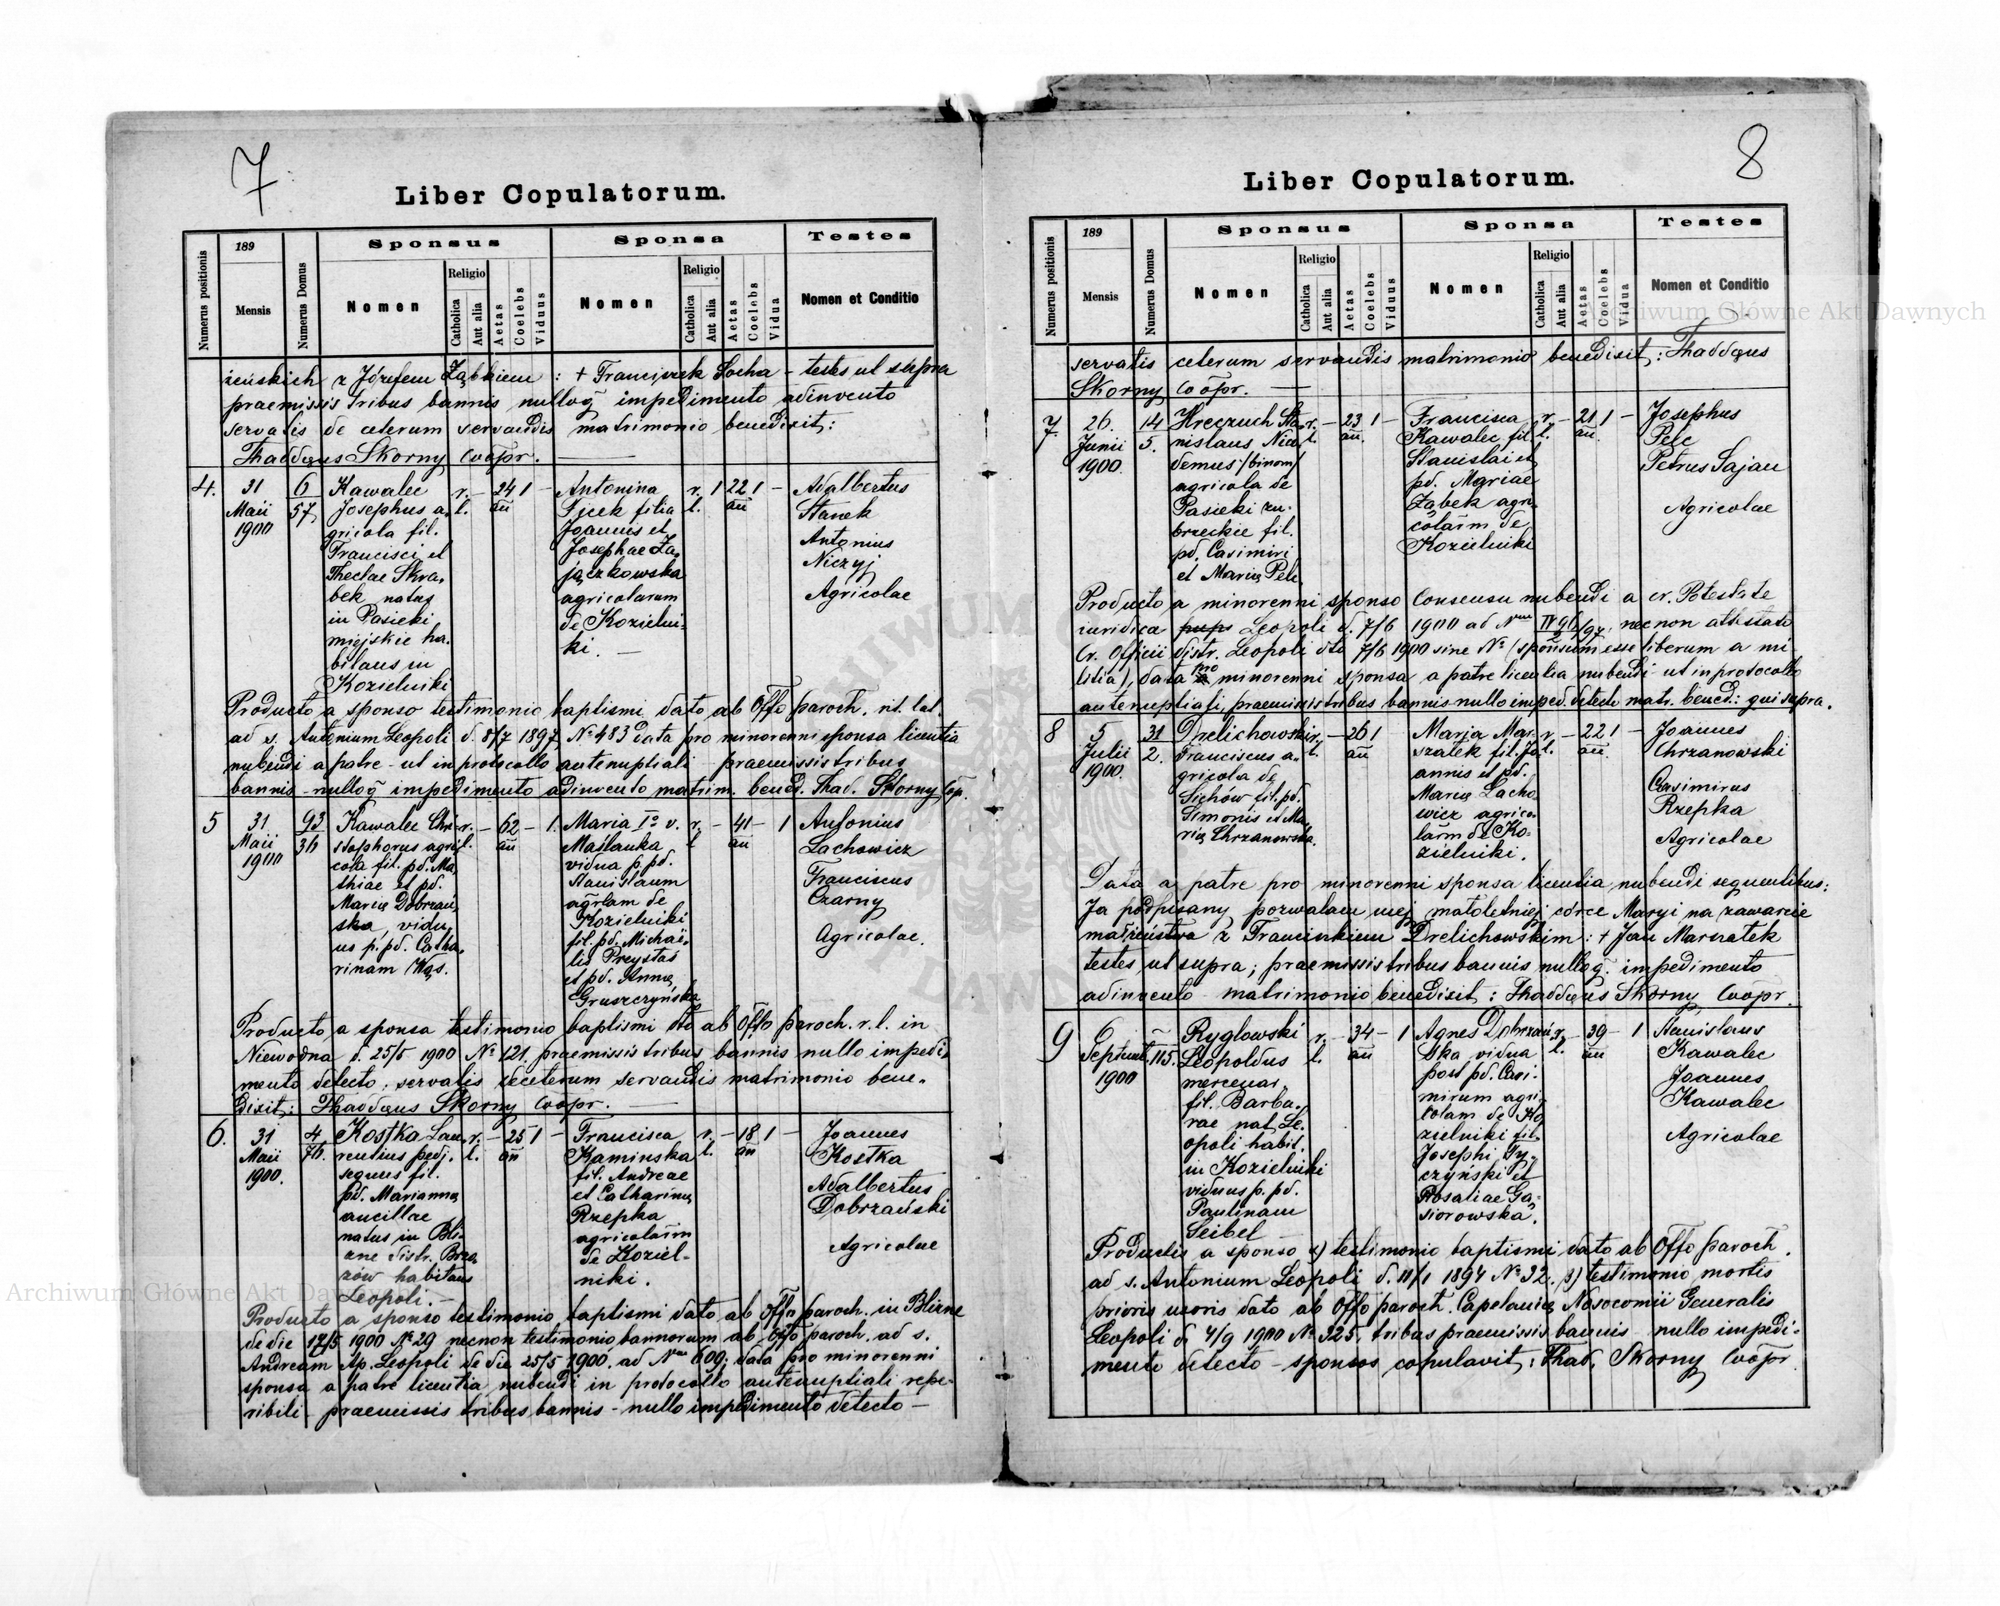 7
Liber Copulatorum.
Numerus positionis
189
Mensis
Numerus Domus
Sponsus
Nomen
Religio
Catholica
Aut alia
Aetas
Coelebs
Viduus
Sponsa
Nomen
Religio
Catholica
Aut alia
Aetas
Coelebs
Vidua
Testes
Nomen et Conditio
żeńskich z Józefem Ząbkiem : + Franciszek Socha – testes ut supra
praemissis tribus bannis nulloq impedimento adinvento
servatis de ceterum servandis matrimonio benedixit:
Thaddæus Skorny Coopr.
4.
31
Maii
1900
6
57
Kawalec
Josephus a-
gricola fil.
Francisci et
Theclae Skra-
bek natus
in Pasieki
miejskie ha-
bitans in
Kozielniki
r.
l.
–
24
an
1
–
Antonina
Ficek filia
Joannis et
Josephae Za-
jączkowska
agricolarum
de Kozielni-
ki. –
r.
l.
1
22
an
1
–
Adalbertus
Stanek
Antonius
Niczyj
Agricolae
Producto a sponso testimonio baptismi dato ab Offo paroch. rit. lat.
ad s. Antonium Leopoli d. 8/7 1897 No 483 Data pro minorenni sponsa licentia
nubendi a patre – ut in protocollo antenuptiali praemissis tribus
bannis – nulloq impedimento adinvento matrim. bened. Thad. Skorny Cop.
5
31
Maii
1900
93
36
Kawalec Chri-
stophorus agri-
cola fil. pd. Ma-
thiae et pd.
Mariæ Dobrzań-
ska, vidu-
us p. pd. Catha-
rinam Wąs.
r.
l.
–
62
an
–
1.
Maria Io v.
Maślanka
vidua p. pd.
Stanislaum
agrlam de
Kozielniki
fil. pd. Michaë-
lis Preystas
et pd. Annæ
Gruszczyńska
r.
l
–
41
an
–
1
Antonius
Lachowicz
Franciscus
Czarny
Agricolae.
Producto a sponsa testimonio baptismi dto ab Offo paroch. r. l. in
Niewodna d. 25/5 1900 No 121. praemissis tribus bannis nullo impedi
mento detecto, servatis deceterum servandis matrimonio bene-
dixit: Thaddæus Skorny Coopr.
6.
31
Maii
1900.
4
76.
Kostka Lau-
rentius pedi-
sequus fil.
pd. Mariannæ
ancillae
natus in Bli-
zne distr. Brzo-
zów habitans
Leopoli. –
r.
l.
–
25
an
1
–
Francisca
Kaminska
fil. Andreae
et Catharinæ
Rzepka
agricolarm
de Koziel-
niki.
r.
l.
–
18
an
1
–
Joannes
Kostka
Adalbertus
Dobrzański
Agricolae
Producto a sponso testimonio baptismi dato ab Offo paroch. in Blizne
de die 17/5 1900 No 29 necnon testimonio bannorum ab Offo paroch. ad s.
Andream Ap. Leopoli de die 25/5 1900. ad Num 609; data pro minorenni
sponsa a patre licentia nubendi in protocollo antenuptiali repe-
ribili praemissis tribus bannis – nullo impedimento detecto –
8
Liber Copulatorum.
Numerus positionis
189
Mensis
Numerus Domus
Sponsus
Nomen
Religio
Catholica
Aut alia
Aetas
Coelebs
Viduus
Sponsa
Nomen
Religio
Catholica
Aut alia
Aetas
Coelebs
Vidua
Testes
Nomen et Conditio
servatis ceterum servandis matrimonio benedixit: Thaddæus
Skorny Coopr.
7
26.
Junii
1900.
14
5.
Hreczuch Sta-
nislaus Nico-
demus /binom/
agricola de
Pasieki zu-
brzeckie fil.
pd. Casimiri
et Mariæ Pelc
r.
l.
–
23
an.
1
–
Francisca
Kawalec fil.
Stanislai et
pd. Mariae
Ząbek agri-
colarm de
Kozielniki
r.
l.
–
21
an.
1
–
Josephus
Pelc
Petrus Sajan
Agricolae
Producto a minorenni sponso Consensu nubendi a cr. Potestate
iuridica Leopoli d. 7/6 1900 ad Num IV 96/97, necnon attestato
Cr. Officii distr. Leopoli dto 7/6 1900 sine No (sponsum esse liberum a mi-
litia), data pro minorenni sponsa a patre licentia nubendi – ut in protocollo
antenuptiali, praemissis tribus bannis nullo imped. detecto matr. bened.: qui supra.
8
5
Julii
1900.
31
2.
Drelichowski
Franciscus a-
gricola de
Sichów fil. pd.
Simonis et Ma-
riæ Chrzanowska.
r.
l.
–
26
an
1
Marja Mar-
szałek fil. Jo-
annis et pd.
Mariæ Lacho-
wicz agrico-
larm de Ko-
zielniki.
r
l.
–
22
an.
1
–
Joannes
Chrzanowski
Casimirus
Rzepka
Agricolae
Data a patre pro minorenni sponsa licentia nubendi sequentibus:
Ja podpisany pozwalam mej małoletniej córce Maryi na zawarcie
małżeństwa z Franciszkiem Drelichowskim: + Jan Marszałek
testes ut supra; praemissis tribus bannis nulloq. impedimento
adinvento – matrimonio benedixit: Thaddæus Skorny Coopr.
9
6
Septemb.
1900
–
115.
Ryglowski
Leopoldus
mercenar.
fil. Barba-
rae nat. Le-
opoli habit.
in Kozielniki
viduus p. pd.
Paulinam
Seibel
r.
l.
–
34
an
–
1
Agnes Dobrzań-
ska vidua
post pd. Casi-
mirum agri-
colam de Ko
zielniki fil.
Josephi Ty-
czyński et
Rosaliae Gą-
siorowska.
r.
l.
–
39
an
–
1
Stanislaus
Kawalec
Joannes
Kawalec
Agricolae
Productis a sponso α) testimonio baptismi dato ab Offo paroch.
ad s. Antonium Leopoli d. 11/1 1894 No 32. β) testimonio mortis
prioris uxoris dato ab Offo paroch. Capelaniæ Nosocomii Generalis
Leopoli d 4/9 1900 No 325. tribus praemissis bannis – nullo impedi-
mento detecto – sponsos copulavit: Thad. Skorny Coopr.
Archiwum Główne Akt Dawnych